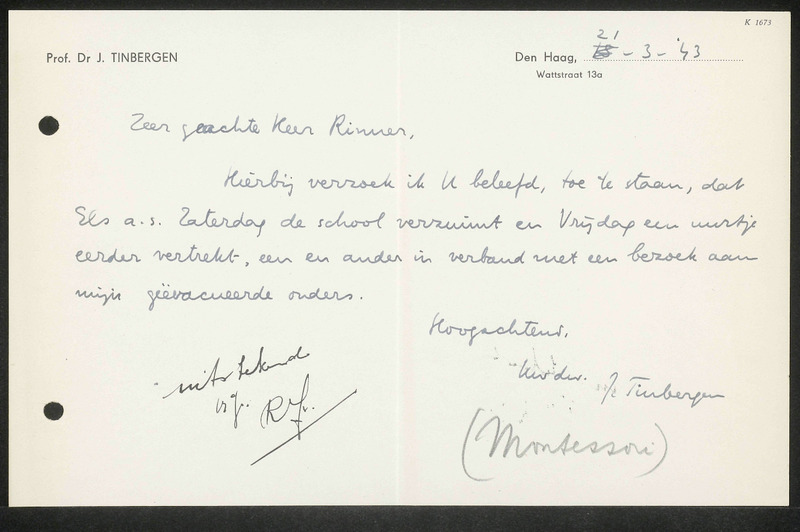 K 1673
Prof. Dr J. TINBERGEN
Den Haag, 21 - 3 - '43
Wattstraat 13a
Zeer geachte Heer Rinner,
Hierbij verzoek ik U beleefd, toe te staan, dat
Els a.s. Zaterdag de school verzuimt en Vrijdag een uurtje
eerder vertrekt, een en ander in verband met een bezoek aan
mijn geëvacueerde ouders.
Hoogachtend,
Uw dw. J Tinbergen
(Montessori)